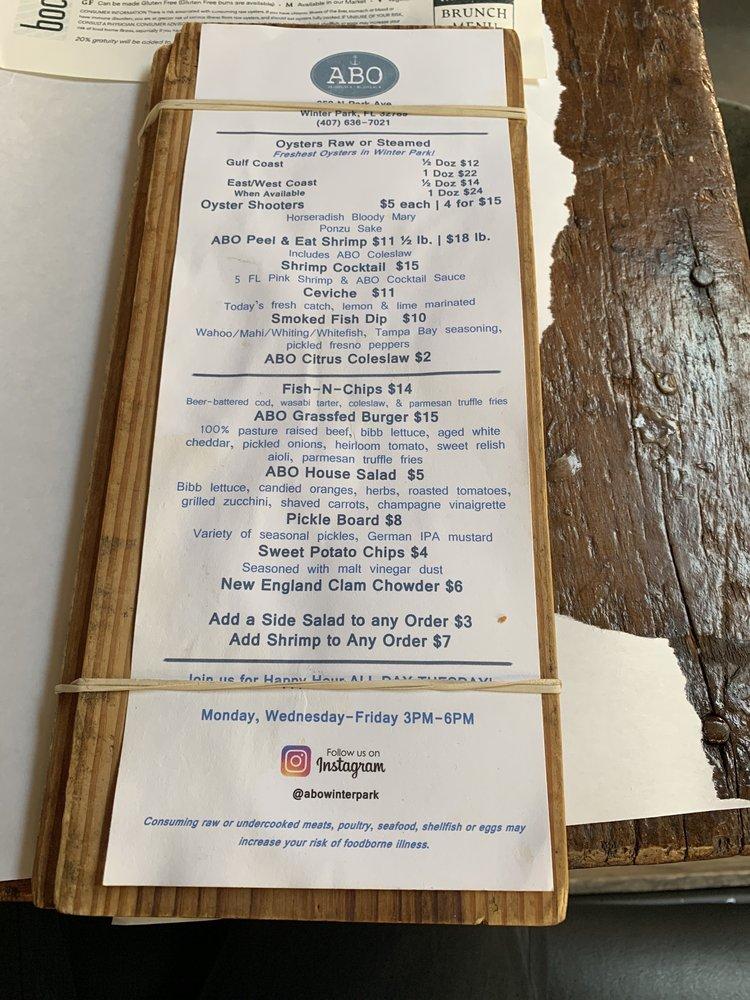 GF Can be made Gluten Free (Gluten Free buns are available) - M Available in our Market - V
20% gratuity will be added to
boc
BRUNCH
MENU
ABO
Park Ave
Winter Park, FL 32789
(407) 636-7021
Oysters Raw or Steamed
Freshest Oysters in Winter Park!
Gulf Coast ½ Doz $12
1 Doz $22
East/West Coast ½ Doz $14
When Available 1 Doz $24
Oyster Shooters $5 each | 4 for $15
Horseradish Bloody Mary
Ponzu Sake
ABO Peel & Eat Shrimp $11 ½ lb. | $18 lb.
Includes ABO Coleslaw
Shrimp Cocktail $15
5 FL Pink Shrimp & ABO Cocktail Sauce
Ceviche $11
Today's fresh catch, lemon & lime marinated
Smoked Fish Dip $10
Wahoo/Mahi/Whiting/Whitefish, Tampa Bay seasoning,
pickled fresno peppers
ABO Citrus Coleslaw $2
Fish-N-Chips $14
Beer-battered cod, wasabi tarter, coleslaw, & parmesan truffle fries
ABO Grassfed Burger $15
100% pasture raised beef, bibb lettuce, aged white
cheddar, pickled onions, heirloom tomato, sweet relish
aioli, parmesan truffle fries
ABO House Salad $5
Bibb lettuce, candied oranges, herbs, roasted tomatoes,
grilled zucchini, shaved carrots, champagne vinaigrette
Pickle Board $8
Variety of seasonal pickles, German IPA mustard
Sweet Potato Chips $4
Seasoned with malt vinegar dust
New England Clam Chowder $6
Add a Side Salad to any Order $3
Add Shrimp to Any Order $7
Join us for Happy Hour ALL DAY TUESDAY!
Monday, Wednesday-Friday 3PM-6PM
Follow us on
Instagram
@abowinterpark
Consuming raw or undercooked meats, poultry, seafood, shellfish or eggs may
increase your risk of foodborne illness.